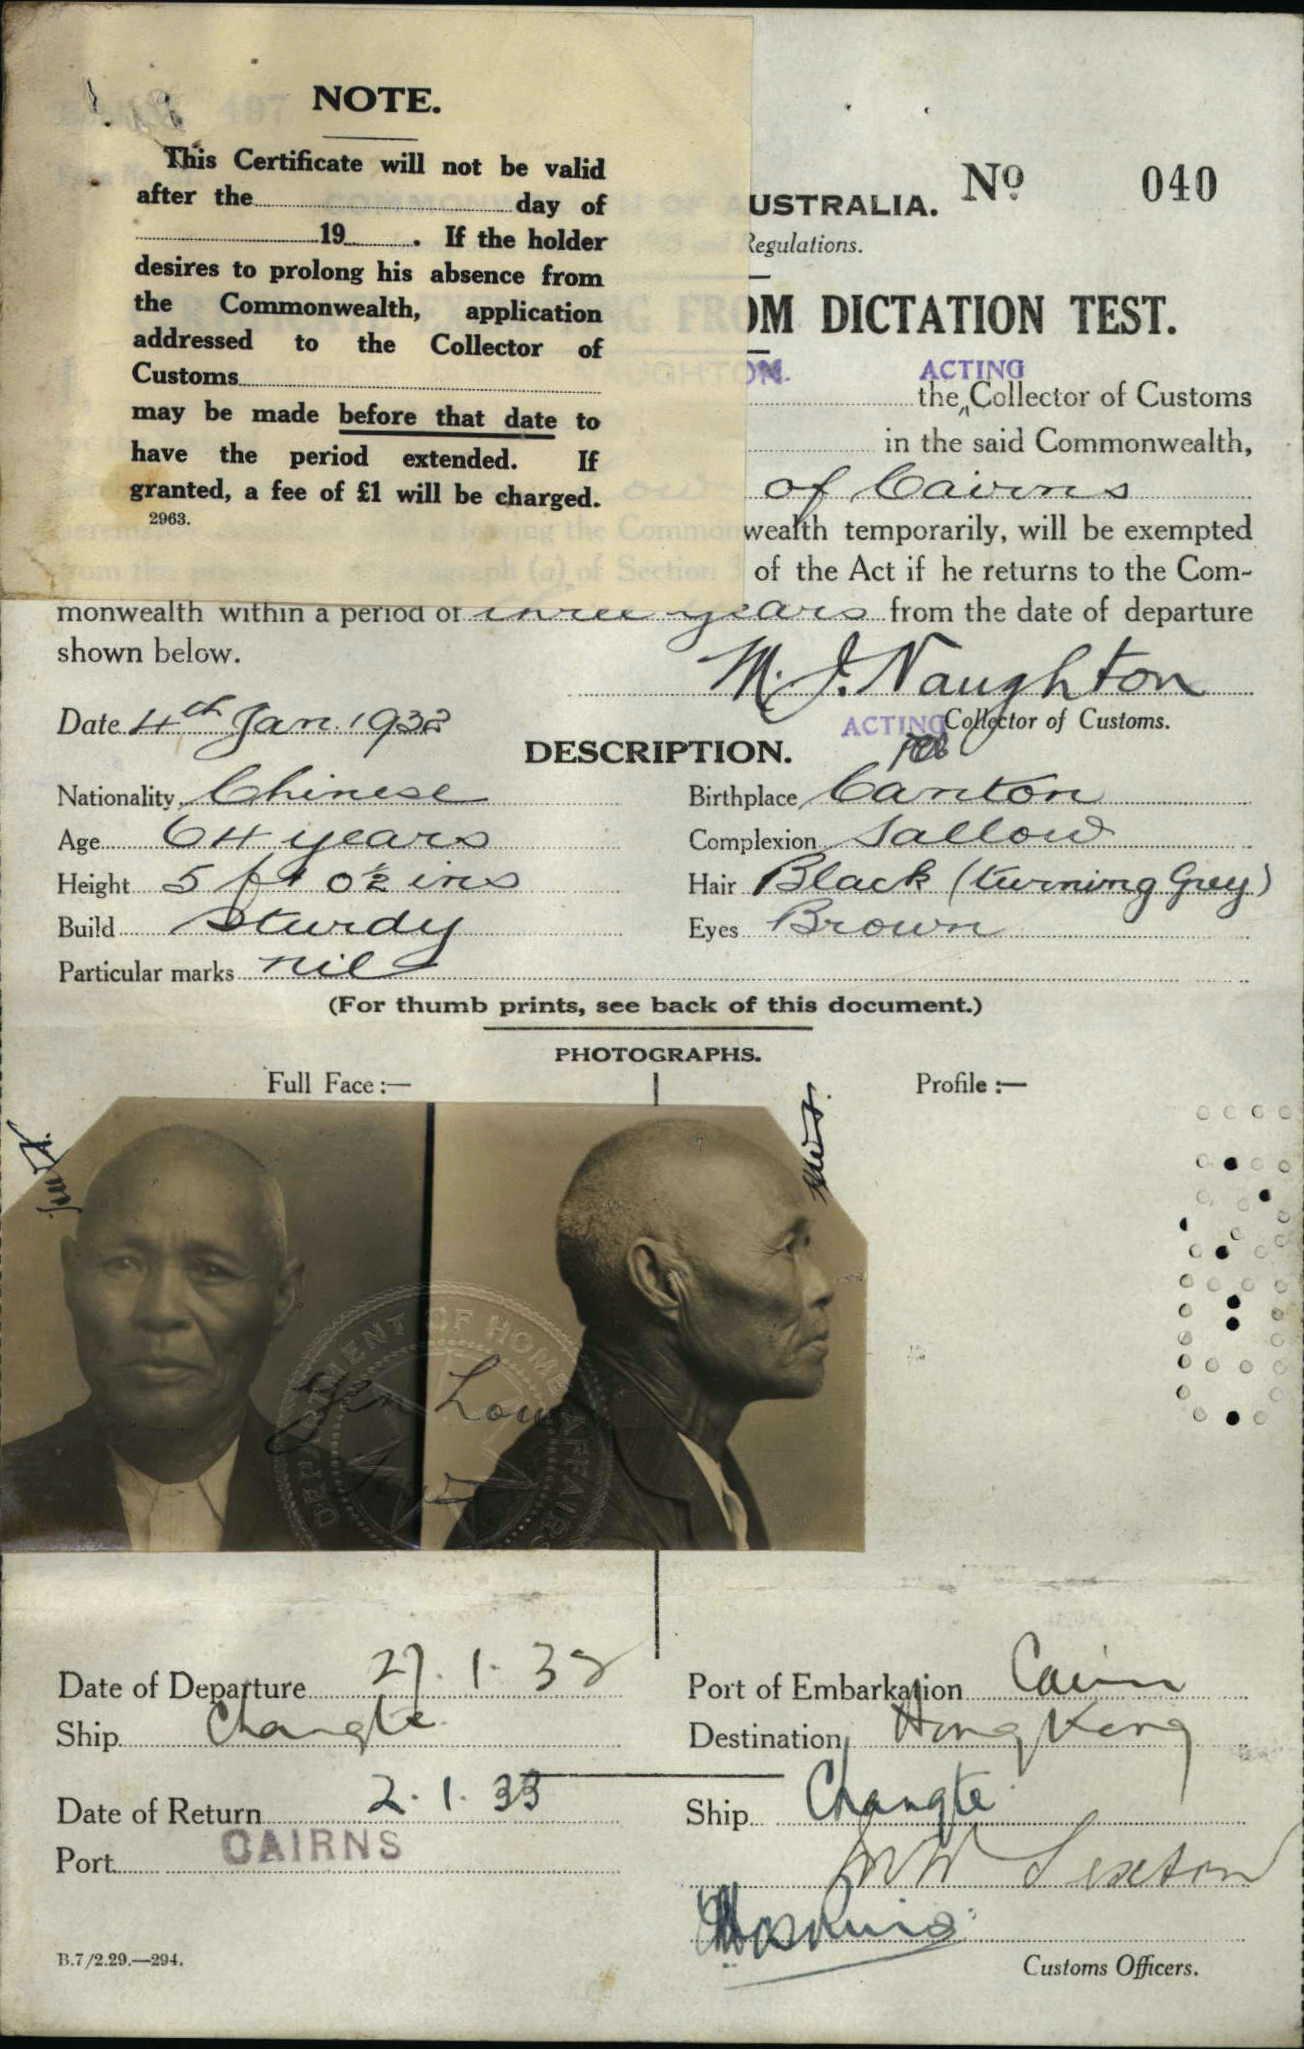 NOTE.
This Certificate will not be valid
after the day of
19 . If the holder
desires to prolong his absence from
the Commonwealth, application
addressed to the Collector of
Customs
may be made before that date to
have the period extended. If
granted, a fee of £1 will be charged.
2963.
No 040
USTRALIA.
Regulations.
OM DICTATION TEST.
ON. ACTING
the Collector of Customs
in the said Commonwealth,
of Cairns
wealth temporarily, will be exempted
of the Act if he returns to the Com-
monwealth within a period of three years from the date of departure
shown below.
M. J. Naughton
Date 4th Jan. 1932 ACTING Collector of Customs.
DESCRIPTION.
Nationality Chinese Birthplace Canton
Age 64 years Complexion Sallow
Height 5 ft 0½ ins Hair Black (turning Grey)
Build Sturdy Eyes Brown
Particular marks nil
(For thumb prints, see back of this document.)
PHOTOGRAPHS.
Full Face :— Profile :—
DEPARTMENT OF HOME AFFAIRS
Yen Low
Date of Departure 27.1.32 Port of Embarkation Cairns
Ship Changte Destination Hong Kong
Date of Return 2.1.33 Ship Changte
Port CAIRNS
Sexton
B.7/2.29.—294. Customs Officers.